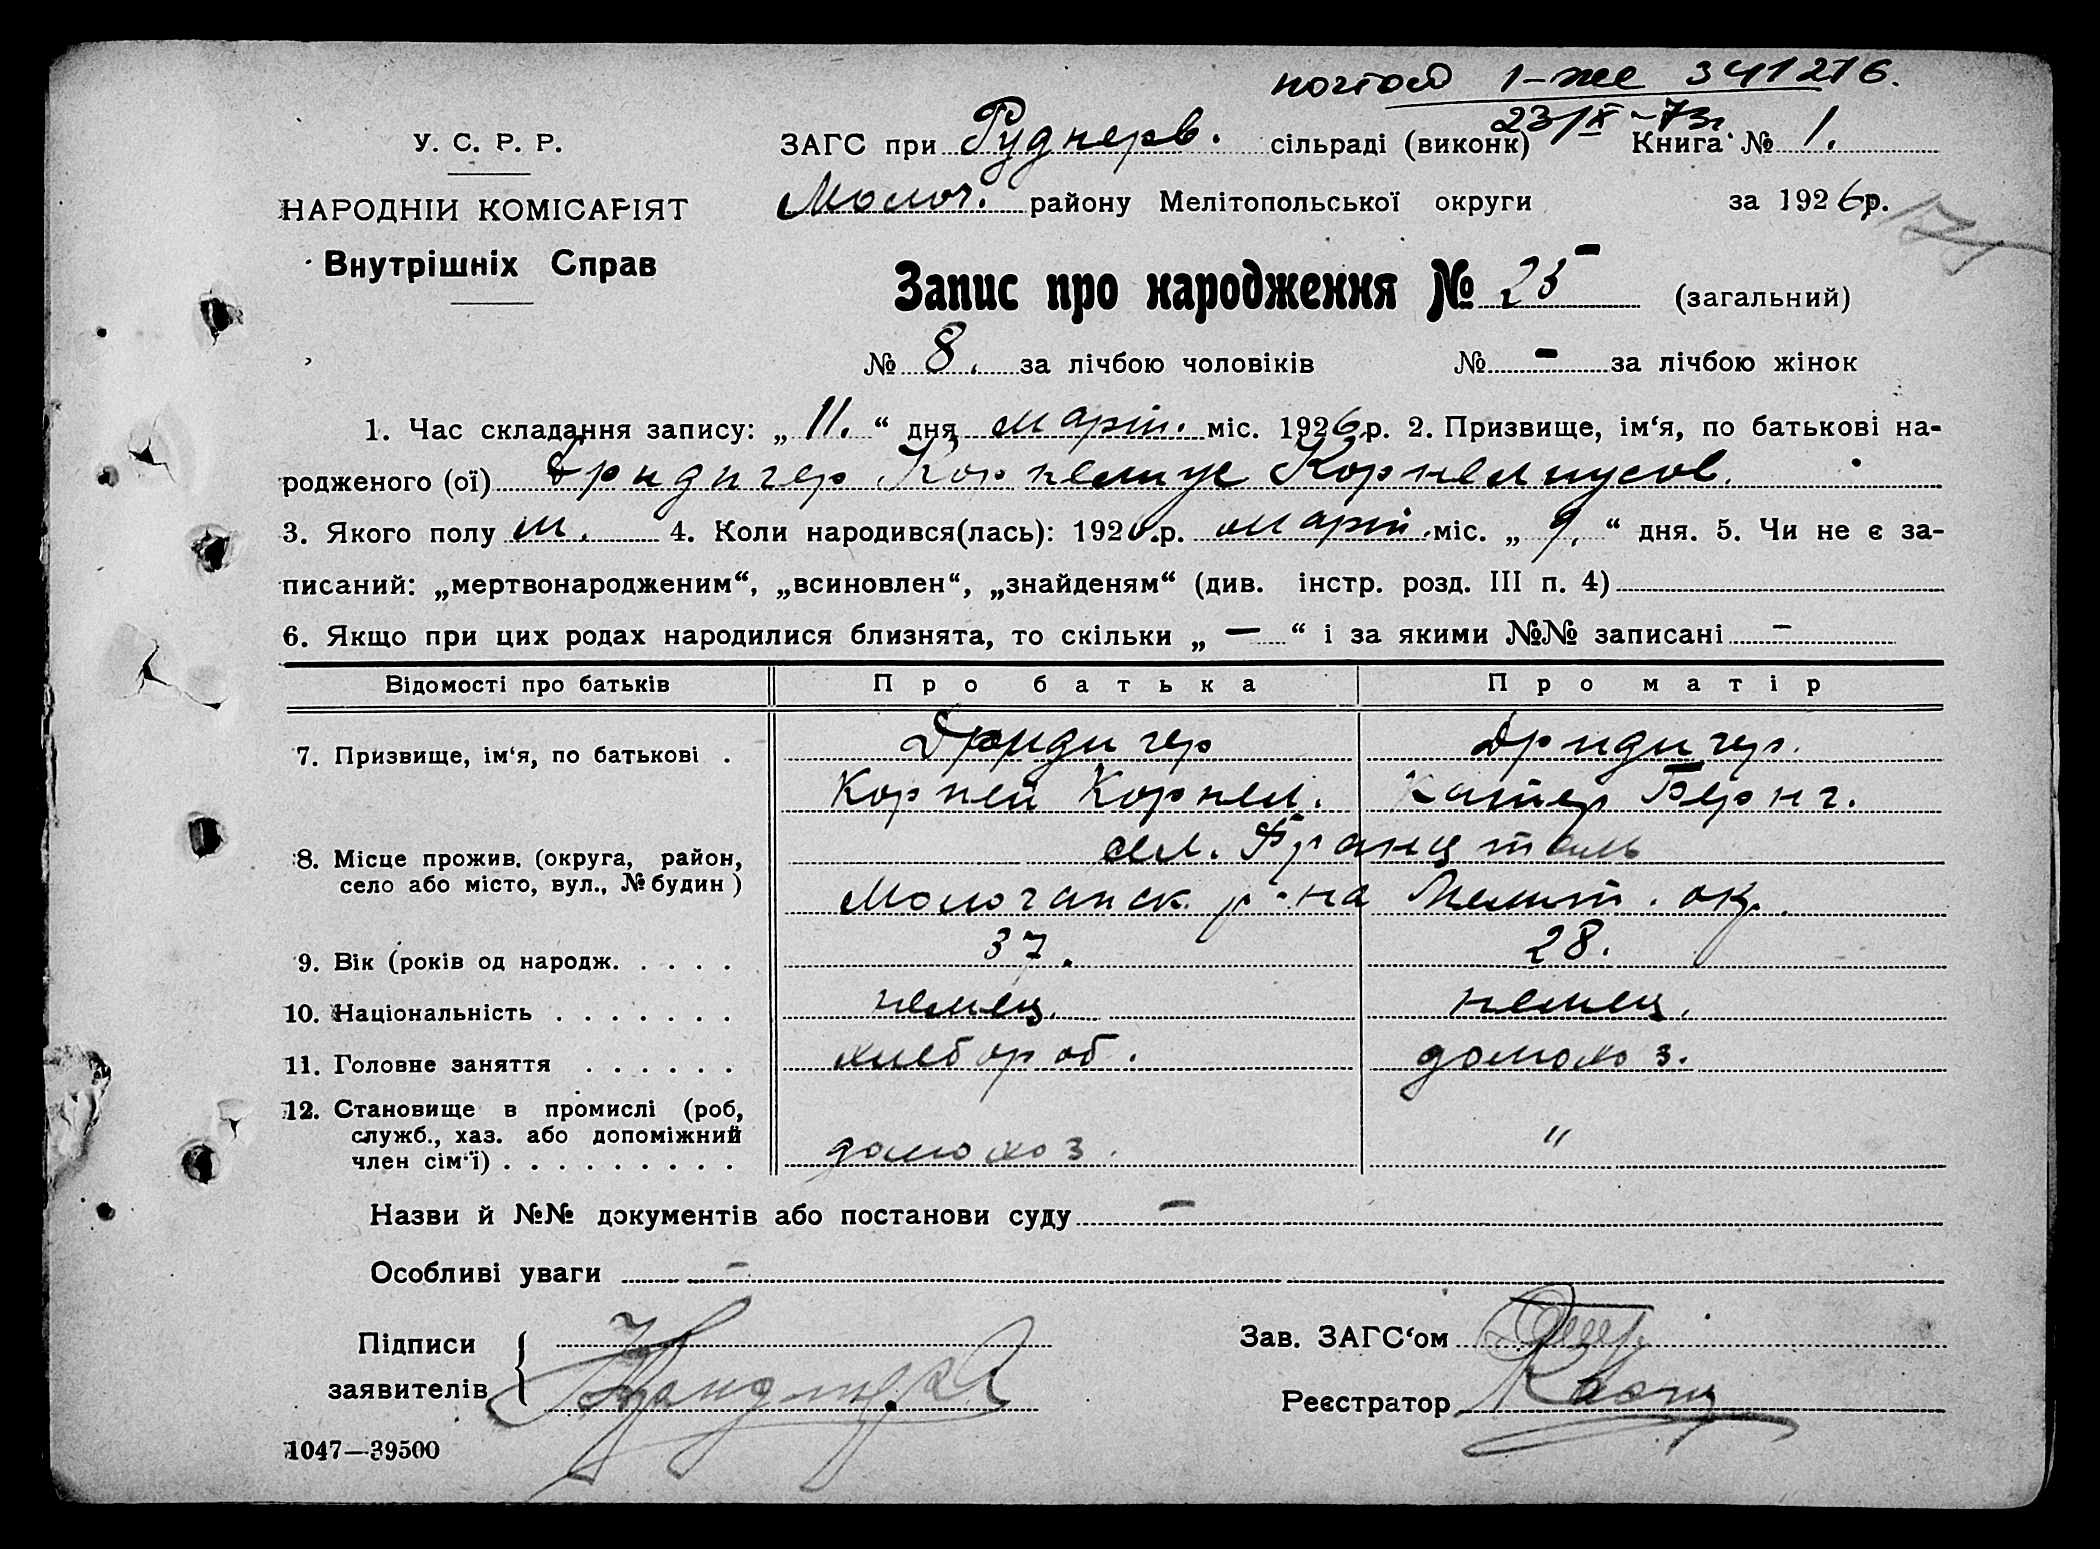 почтой 1-же 341216.
23/IX-73г.
У. С. Р. Р.
НАРОДНІЙ КОМІСАРІЯТ
Внутрішніх Справ
ЗАГС при Руднерв. сільраді (виконк) Книга № 1.
Молоч. району Мелітопольської округи за 1926р.
Запис про народження № 25 (загальний)
№ 8. за лічбою чоловіків № - за лічбою жінок
1. Час складання запису: „11.“ дня март. міс. 1926р. 2. Призвище, ім‘я, по батькові на-
родженого (ої) Дридигер Корнелиус Корнелиусов.
3. Якого полу м. 4. Коли народився(лась): 1926.р. март. міс. „9,“ дня. 5. Чи не є за-
писаний: „мертвонародженим“, „всиновлен“, „знайденям“ (див. інстр. розд. III п. 4)
6. Якщо при цих родах народилися близнята, то скільки „ — “ і за якими №№ записані -
Відомості про батьків Про батька Про матір
7. Призвище, ім‘я, по батькові . Дридигер Дридигер.
Корней Корнел. Катер Бернг.
8. Місце прожив. (округа, район, сел. Францталь
село або місто, вул., № будин ) Молочанск. р-на Мелит. окр.
9. Вік (років од народж. . . . . 37. 28.
10. Національність . . . . . . . немец. немец.
11. Головне заняття . . . . . . хлебороб. домохоз.
12. Становище в промислі (роб,
служб., хаз. або допоміжний
член сім‘ї) . . . . . . . . . домохоз. "
Назви й №№ документів або постанови суду -
Особливі уваги -
Підписи Зав. ЗАГС‘ом
заявителів Реєстратор
1047—39500